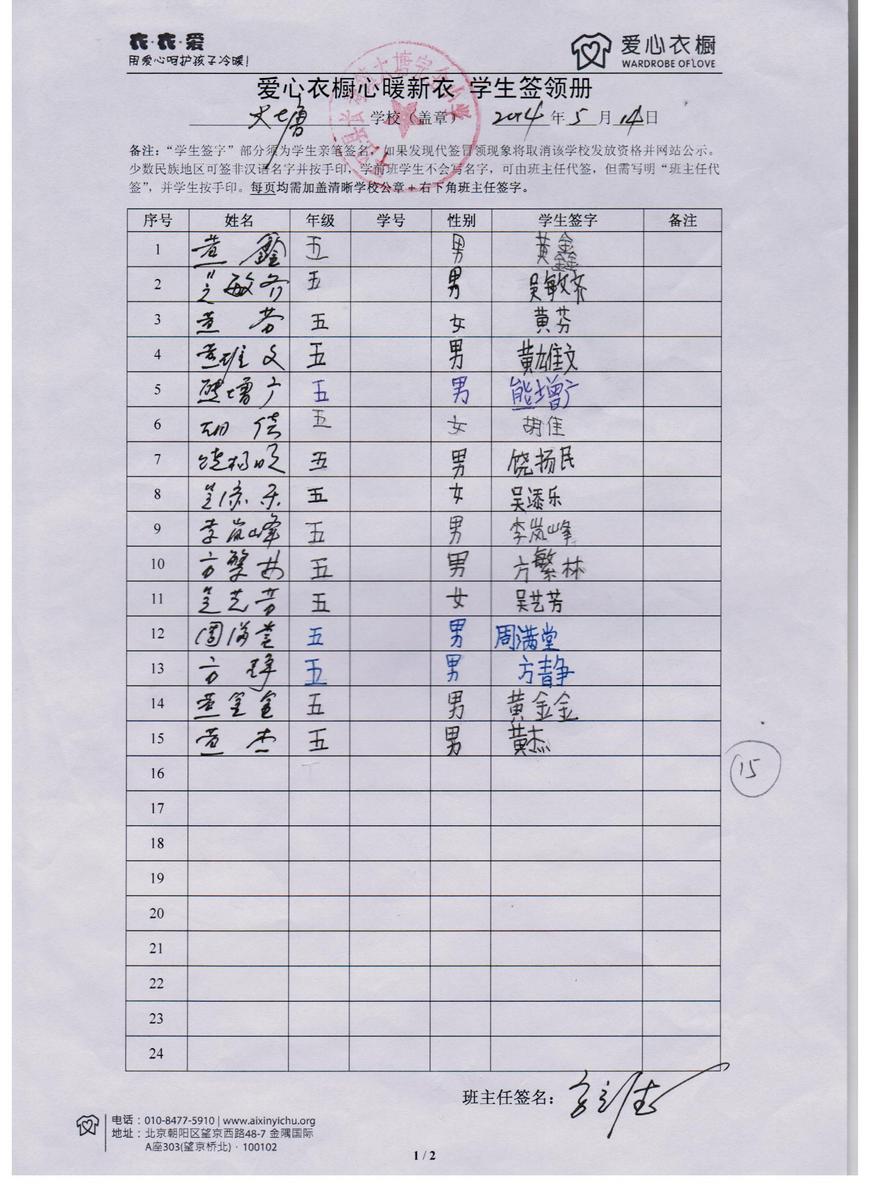 衣·衣·爱
用爱心呵护孩子冷暖!
爱心衣橱
WARDROBE OF LOVE
爱心衣橱心暖新衣 学生签领册
大塘 学校(盖章) 2014 年 5 月 14 日
备注:“学生签字”部分须为学生亲笔签名,如果发现代签冒领现象将取消该学校发放资格并网站公示。
少数民族地区可签非汉语名字并按手印,学前班学生不会写名字,可由班主任代签,但需写明“班主任代
签”,并学生按手印。每页均需加盖清晰学校公章+右下角班主任签字。
序号 姓名 年级 学号 性别 学生签字 备注
1 黄鑫 五 男 黄鑫
2 吴敏齐 五 男 吴敏齐
3 黄芬 五 女 黄芬
4 黄雄文 五 男 黄雄文
5 熊增广 五 男 熊增广
6 胡佳 五 女 胡佳
7 饶杨民 五 男 饶扬民
8 吴添乐 五 女 吴添乐
9 李岚峰 五 男 李岚峰
10 方繁林 五 男 方繁林
11 吴艺芳 五 女 吴艺芳
12 周满堂 五 男 周满堂
13 方静 五 男 方静
14 黄金金 五 男 黄金金
15 黄杰 五 男 黄杰
16
15
17
18
19
20
21
22
23
24
班主任签名:
电话:010-8477-5910 | www.aixinyichu.org
地址:北京朝阳区望京西路48-7 金隅国际
A座303(望京桥北)·100102
1 / 2